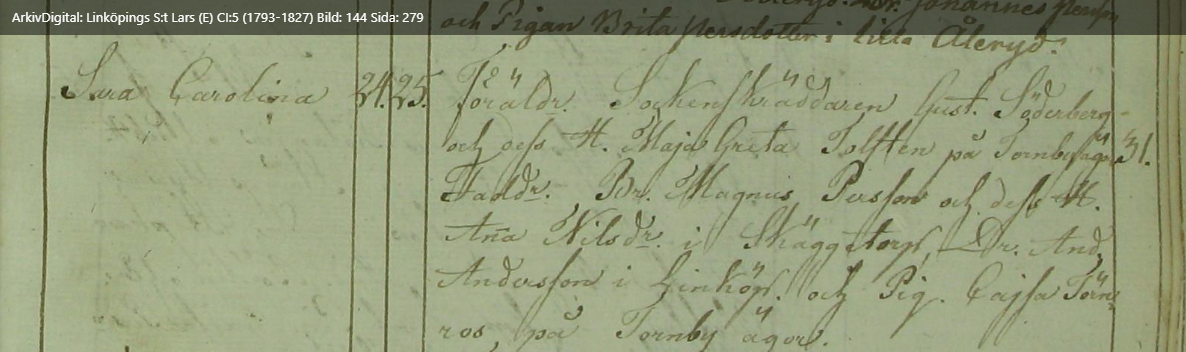 ArkivDigital: Linköpings S:t Lars (E) CI:5 (1793-1827) Bild: 144 Sida: 279
och Pigan Brita Persdotter i lilla Åleryd.
Sara Carolina 24. 25. Föräldr. Sockenskräddaren Gust. Söderberg
och dess H. Maja Greta Tolften på Tornby ägor 31.
Faddr. Br. Magnus Persson och dess H.
Aña Nilsdr. i Skäggetorp, Dr. And.
Andersson i Linköp. och Pig. Cajsa Törn-
ros, på Tornby ägor.